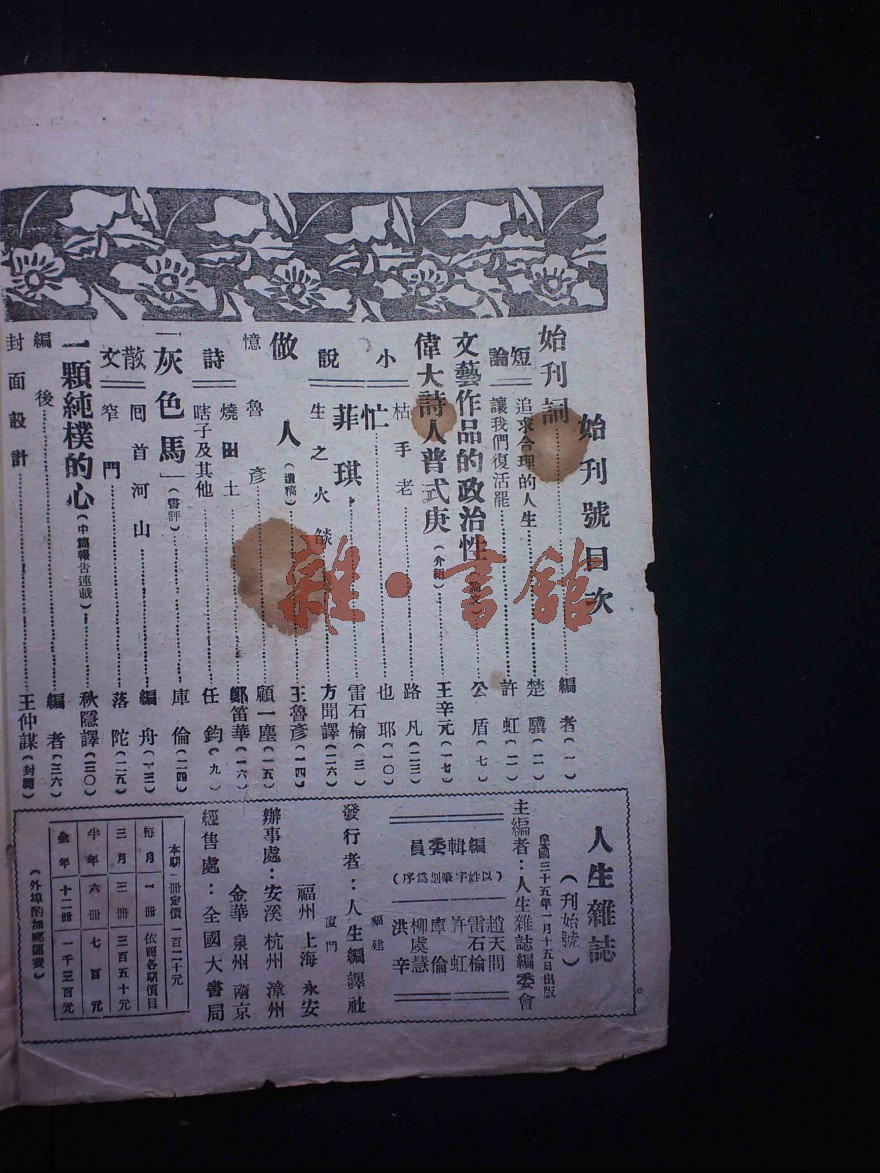 始刊號目次
始刊詞 編者(一)
短論
追求合理的人生 楚驥(一)
讓我們復活罷 許虹(二)
文藝作品的政治性 公盾(七)
偉大詩人普式庚(介紹) 王辛元(一七)
小說
枯手老 路凡(二三)
忙 也耶(一〇)
菲琪 雷石榆(三)
生之火燄 方聞譯(二六)
做人(遺稿) 王魯彥(一四)
憶魯彥 顧一塵(一五)
詩
燒田土 鄭笛華(一六)
瞎子及其他 任鈞(九)
「灰色馬」(書評) 庫倫(二四)
散文
囘首河山 編舟(一三)
窄門 落陀(二五)
一顆純樸的心(中篇報告連載) 秋隱譯(三〇)
編後 編者(三六)
封面設計 王仲謀(封面)
雜·書館
人生雜誌
(刋始號)
民國三十五年一月十五日出版
主編者:人生雜誌編委會
編輯委員
(以姓字筆劃爲序)
趙天問
雷石榆
許虹
庫倫
柳虞慧
洪辛
發行者:人生編譯社
福建
廈門
福州 上海 永安
辦事處:安溪 杭州 漳州
金華 泉州 南京
經售處:全國大書局
本期一冊定價一百二十元
每月 一冊 依照各期價目
三月 三冊 三百五十元
半年 六冊 七百元
全年 十二冊 一千三百元
(外埠酌加郵運費)